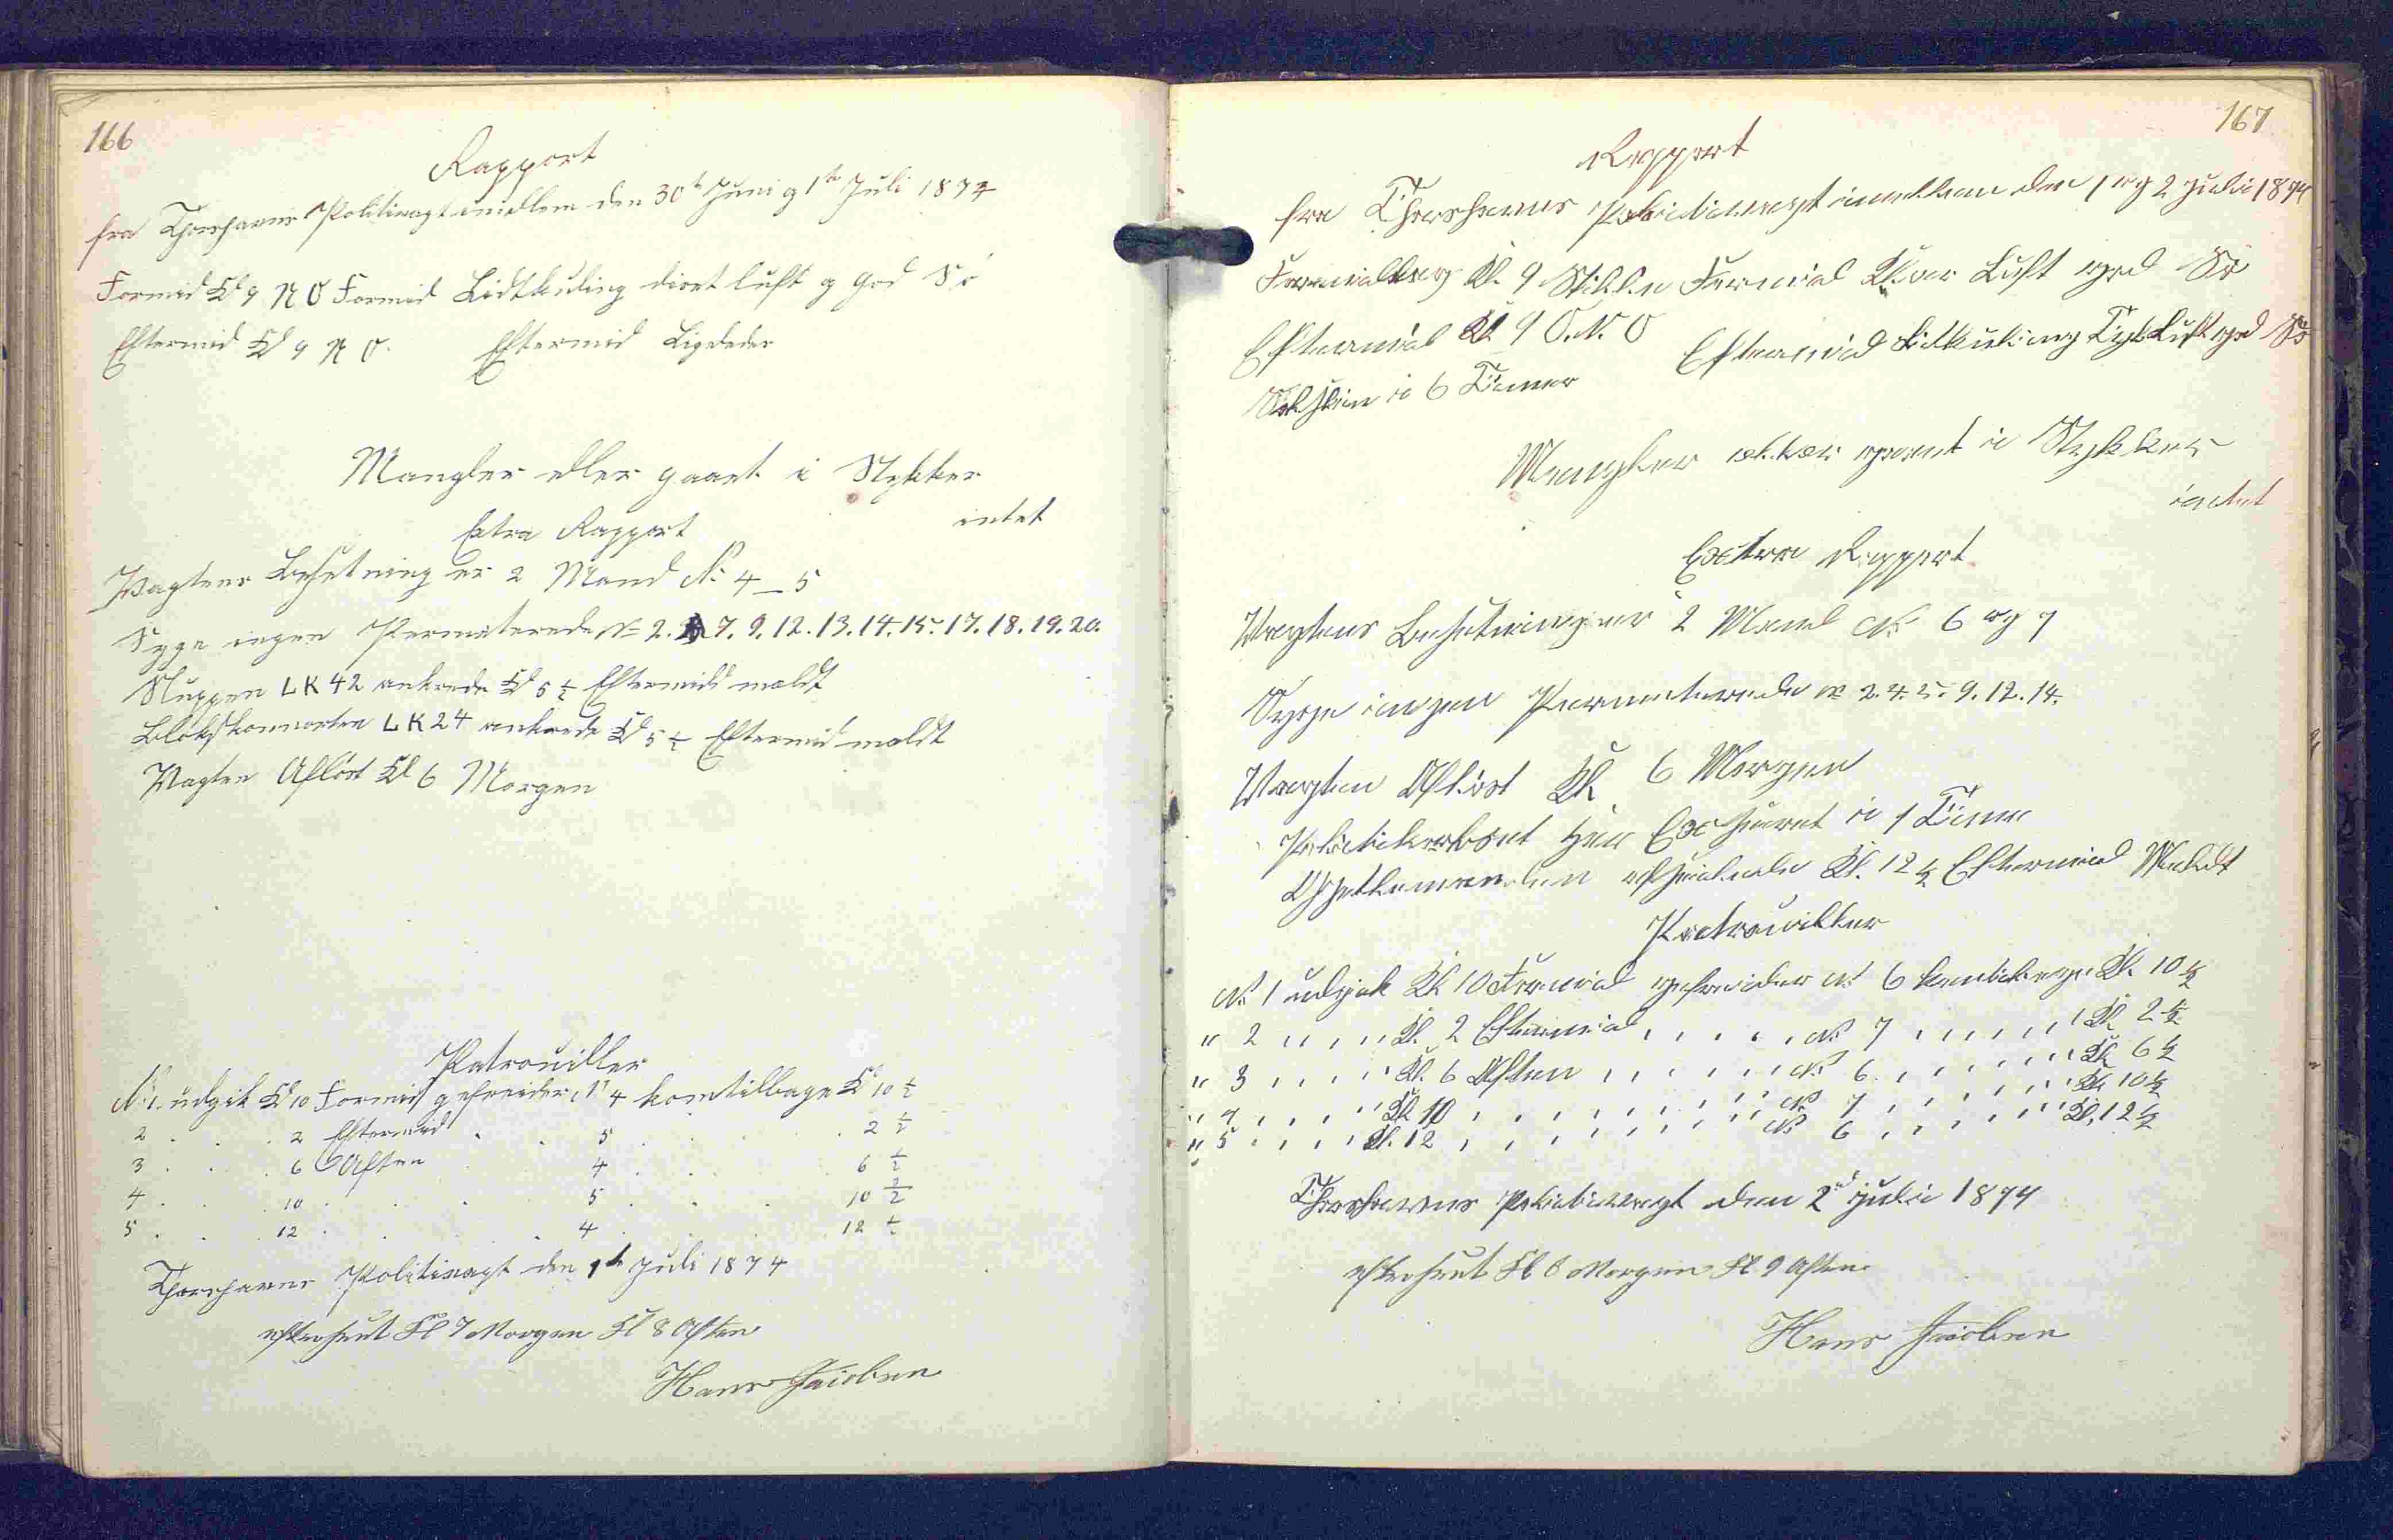 166
Rapport
fra Thorshavns Politivagt imellem den 30t Juni og 1te Juli 1874
Formid Kl 9 N O Formid Lidtkuling diset luft og god Sö
Eftermid Kl 9 N O. Eftermid Ligeledes
Mangler eller gaaet i Stykker
intet
Extra Rapport
Vagtens Besetning er 2 Mand No 4 — 5
Syge ingen Permeterede No 2. 7. 9. 12. 13. 14. 15. 17. 18. 19. 20.
Sluppen LK 42 ankrede Kl 5 ½ Eftermid meldt
LK 24 ankrede Kl 5 ½ Eftermid meldt
Vagten Aflöst Kl 6 Morgen
Patrouiller
No 1. udgik Kl 10 Formid gefreider No 4 kom tilbage Kl 10 ½
2 . . . 2 Eftermid . . 5 . . . 2 ½
3 . . . 6 Aften 4 . . 6 ½
4 . . 10 . . . 5 . . . 10 ½
5 . . 12 . . . 4 . . . 12 ½
Thorshavns Politivagt den 1te Juli 1874
efterseet Kl 7 Morgen Kl 8 Aften
Hans Jacobsen
167
Rapport
fra Thorshavns Politivagt imellem den 1 og 2 Juli 1874
Formiddag Kl. 9 Stille Formid Klar Luft god Sö
Eftermid Kl 9 O. N. O Eftermid Lidkuling Tyk Luft god Sö
Solskin i 6 Timer
Mangler eller gaaet i Stykker
intet
Extra Rapport
Vagtens Besetning er 2 Mand No 6 og 7
Syge ingen Permeterede No 2. 4. 5. 9. 12. 14.
Vagten Aflöst Kl 6 Morgen
i 1 Time
afseilede Kl. 12 ½ Eftermid Meldt
Patrouiller
No 1 udgik Kl 10 Formid gefreider No 6 kom tilbage Kl. 10 ½
" 2 " , , , Kl. 2 Eftermid , , , , No 7 , , , , , Kl 2 ½
" 3 , , , , Kl. 6 Aften , , , , , No 6 , , , , , Kl 6 ½
" 4 , , , , Kl 10 , , , , , , No 7 , , , , , Kl 10 ½
" 5 , , , , Kl. 12 , , , , , , No 6 , , , , , Kl. 12 ½
Thorshavns Politivagt den 2d Juli 1874
efterseet Kl 8 Morgen Kl 9 Aften
Hans Jacobsen